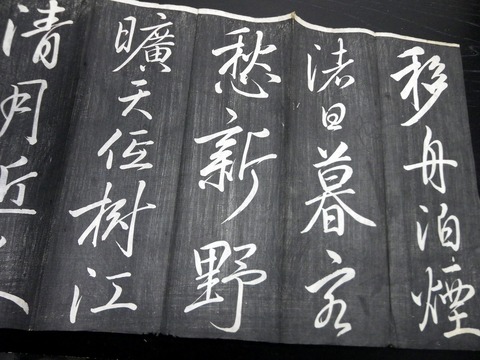 移舟泊煙
渚日暮客
愁新野
曠天低樹江
清月近人